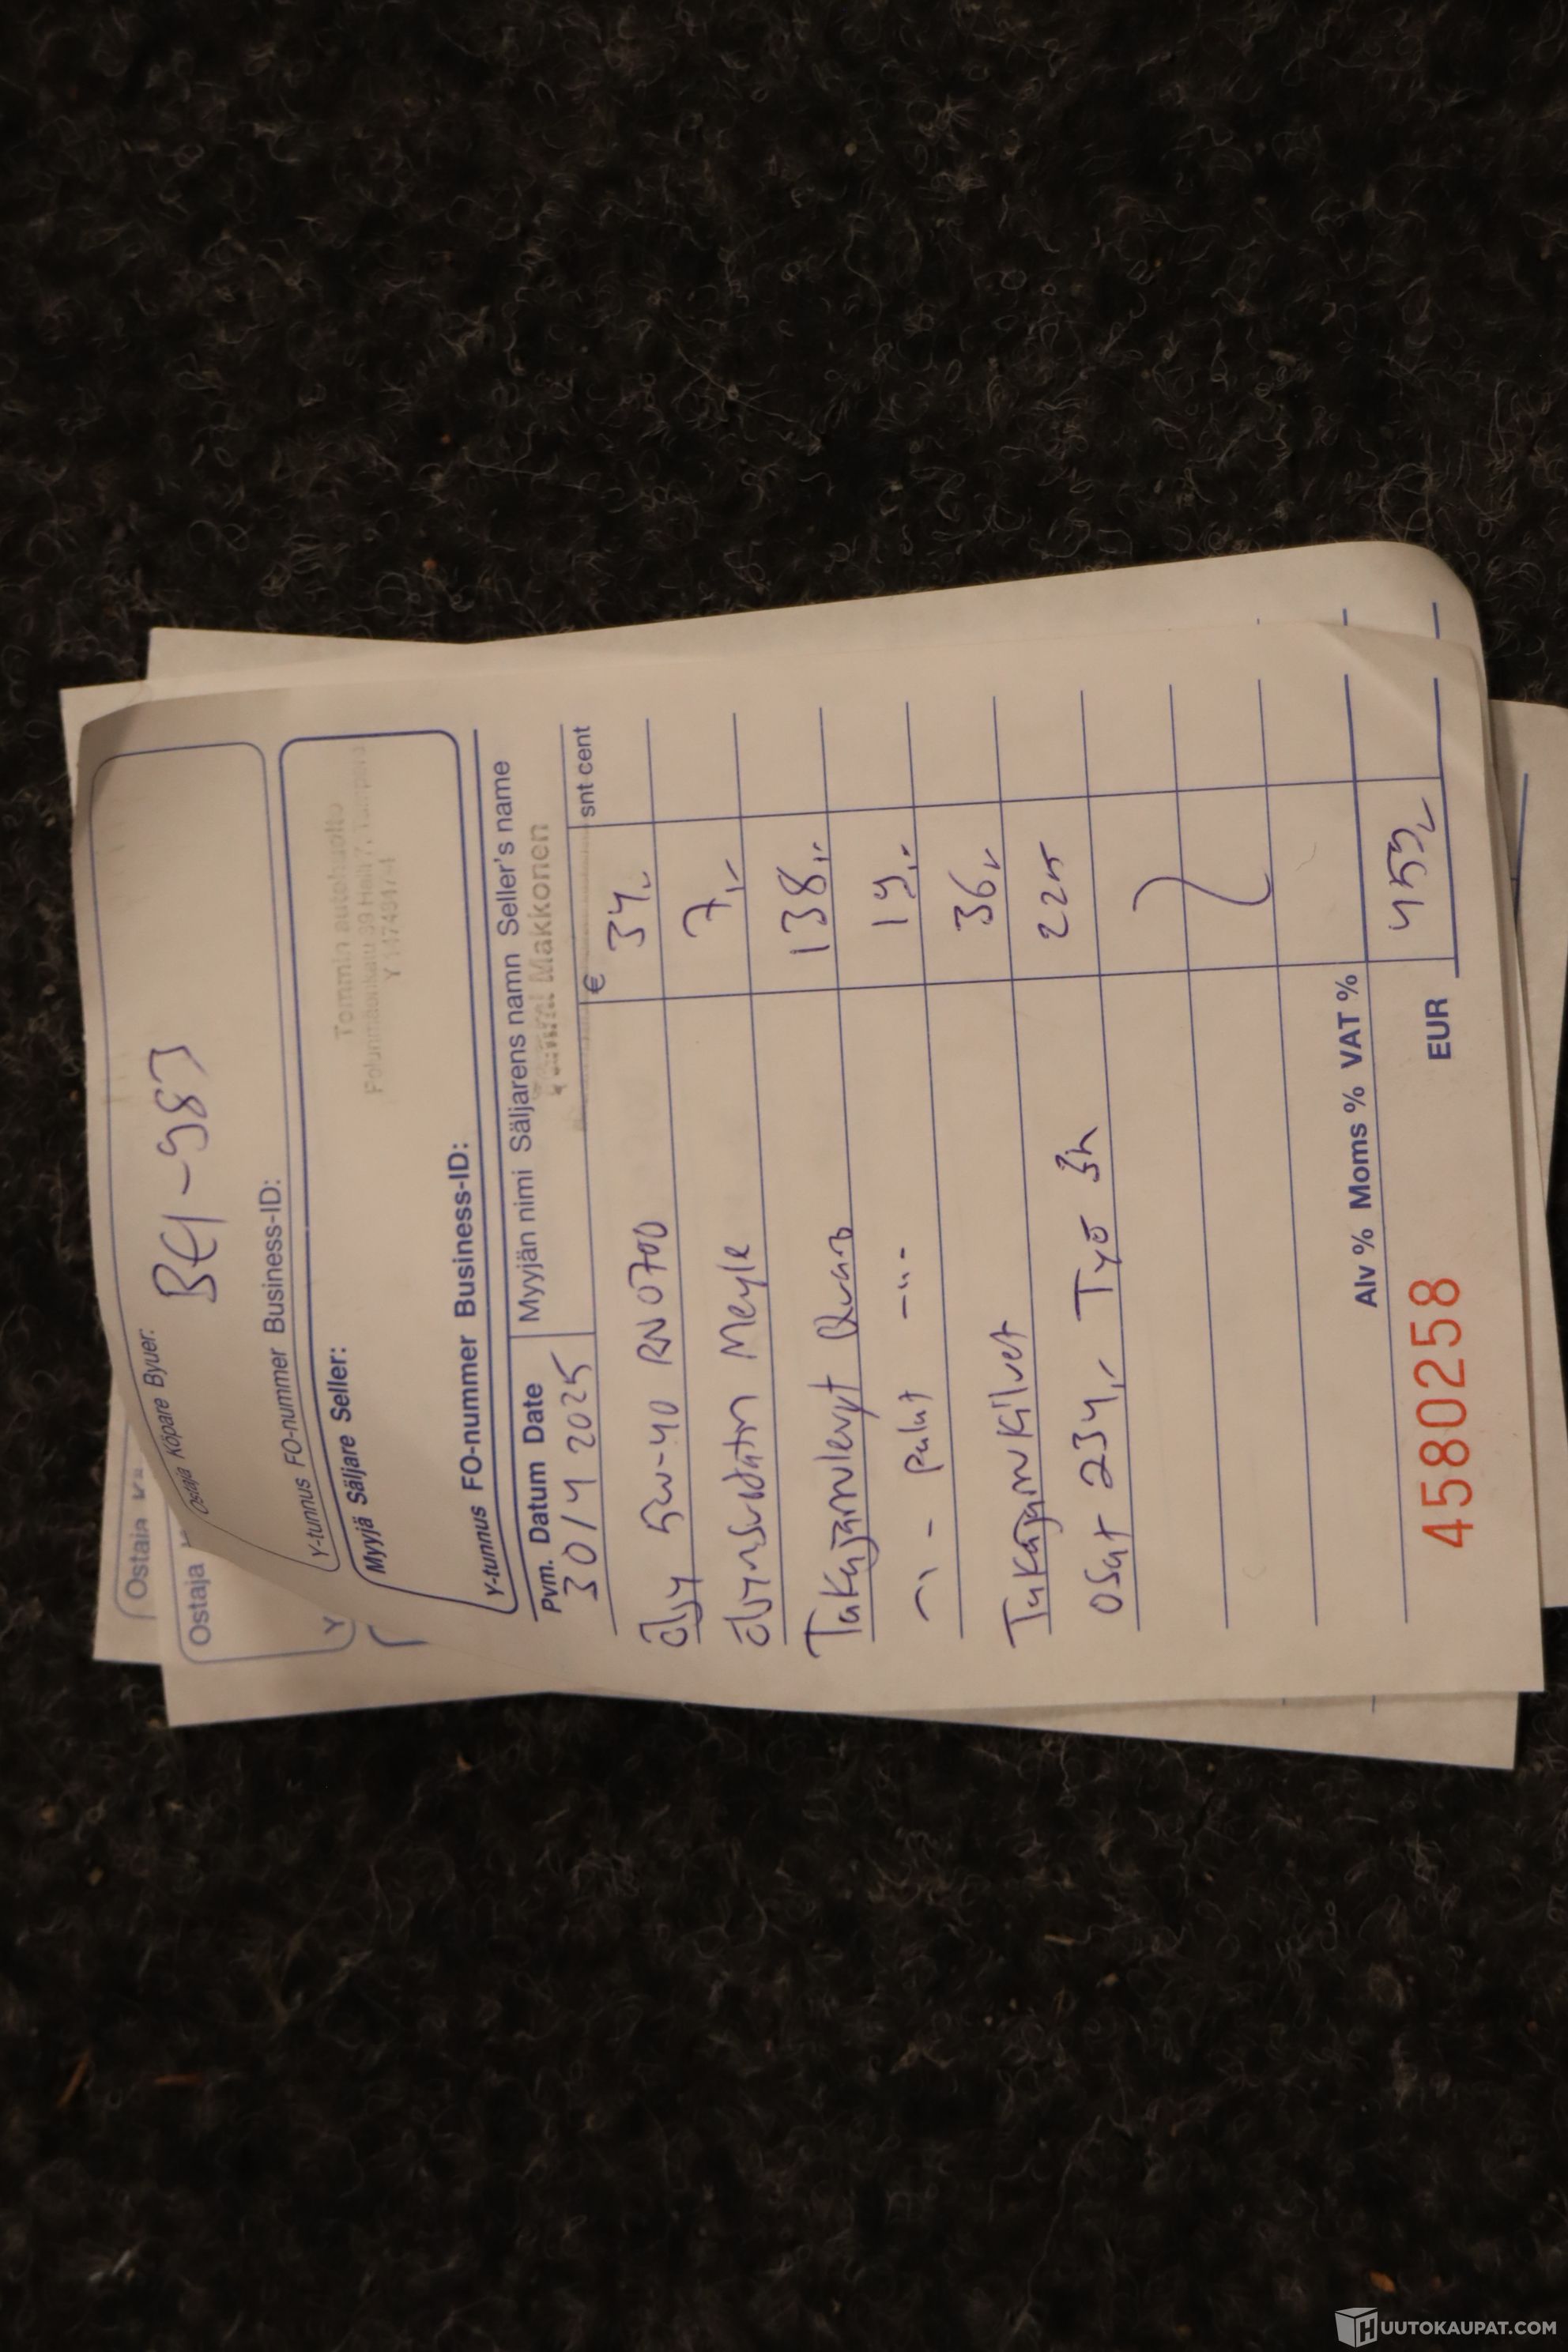 Ostaja
Ostaja
Y
Ostaja Köpare Byuer:
BEI-983
Y-tunnus FO-nummer Business-ID:
Myyjä Säljare Seller:
Tommin autohuolto
Y-tunnus FO-nummer Business-ID:
Pvm. Datum Date Myyjän nimi Säljarens namn Seller's name
30/4 2025 Tommi Makkonen
€ snt cent
öljy 5w-40 RN0700 34,-
öljynsuodatin Meyle 7,-
Takajarrulevyt 138,-
-"- palat -"- 19,-
Takajarrukilvet 36,-
osat 234,- Työ 3h 225
Alv % Moms % VAT %
EUR 459,-
4580258
HUUTOKAUPAT.COM